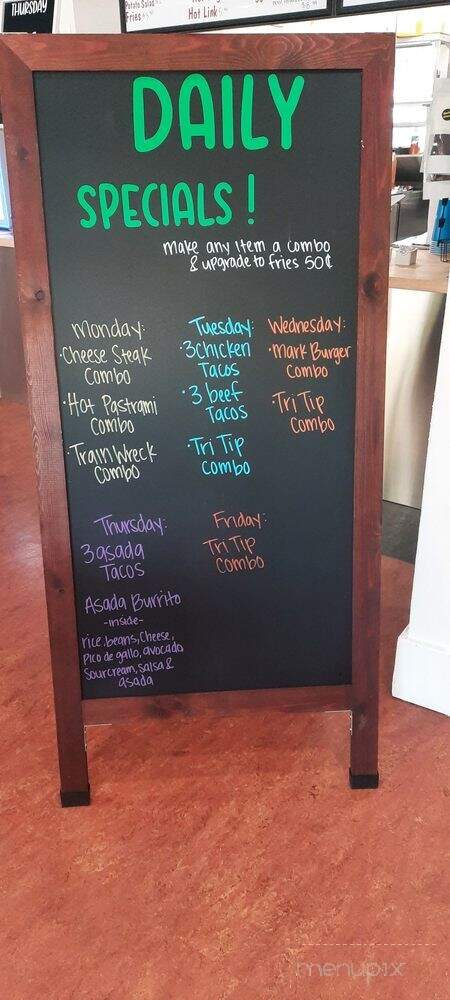 THURSDAY
Potato Salad
Fries
Hot Link
DAILY
SPECIALS!
Make any Item a Combo
& upgrade to fries 50¢
Monday:
·Cheese Steak
Combo
·Hot Pastrami
Combo
·Train Wreck
Combo
Tuesday:
·3 Chicken
Tacos
·3 beef
Tacos
·Tri Tip
Combo
Wednesday:
·Mark Burger
Combo
·Tri Tip
Combo
Thursday:
3 asada
Tacos
Asada Burrito
-inside-
rice, beans, Cheese,
Pico de gallo, avocado
Sourcream, salsa &
asada
Friday:
Tri Tip
Combo
menupix